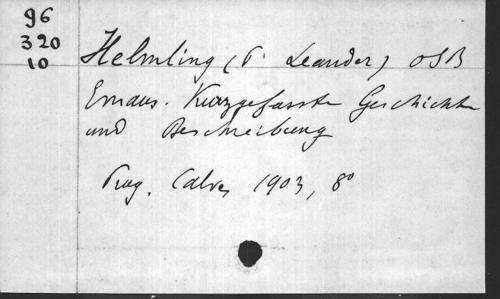 96
320
10
Helmling (P. Leander) OSB
Emaus. Kurzgefasste Geschichte
und Beschreibung
Prag, Calve, 1903, 8°